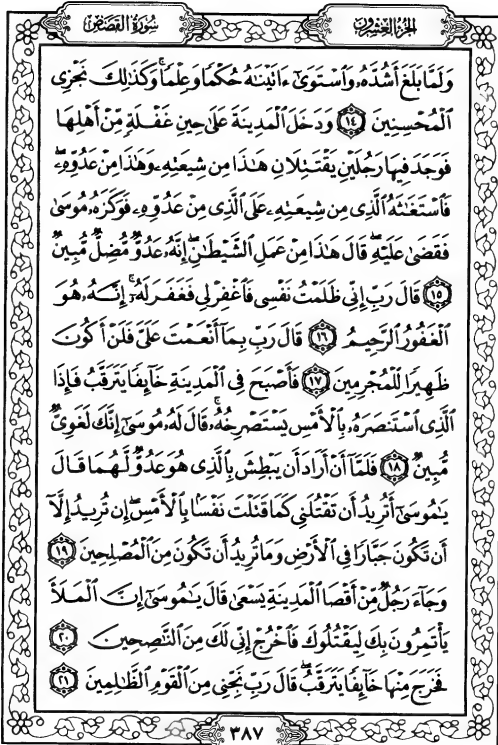 سُورَةُ القَصَصِ
الجزء العشرون
وَلَمَّا بَلَغَ أَشُدَّهُۥ وَٱسْتَوَىٰٓ ءَاتَيْنَٰهُ حُكْمًا وَعِلْمًا ۚ وَكَذَٰلِكَ نَجْزِى
ٱلْمُحْسِنِينَ ١٤ وَدَخَلَ ٱلْمَدِينَةَ عَلَىٰ حِينِ غَفْلَةٍ مِّنْ أَهْلِهَا
فَوَجَدَ فِيهَا رَجُلَيْنِ يَقْتَتِلَانِ هَٰذَا مِن شِيعَتِهِۦ وَهَٰذَا مِنْ عَدُوِّهِۦ ۖ
فَٱسْتَغَٰثَهُ ٱلَّذِى مِن شِيعَتِهِۦ عَلَى ٱلَّذِى مِنْ عَدُوِّهِۦ فَوَكَزَهُۥ مُوسَىٰ
فَقَضَىٰ عَلَيْهِ ۖ قَالَ هَٰذَا مِنْ عَمَلِ ٱلشَّيْطَٰنِ ۖ إِنَّهُۥ عَدُوٌّ مُّضِلٌّ مُّبِينٌ
١٥ قَالَ رَبِّ إِنِّى ظَلَمْتُ نَفْسِى فَٱغْفِرْ لِى فَغَفَرَ لَهُۥٓ ۚ إِنَّهُۥ هُوَ
ٱلْغَفُورُ ٱلرَّحِيمُ ١٦ قَالَ رَبِّ بِمَآ أَنْعَمْتَ عَلَىَّ فَلَنْ أَكُونَ
ظَهِيرًا لِّلْمُجْرِمِينَ ١٧ فَأَصْبَحَ فِى ٱلْمَدِينَةِ خَآئِفًا يَتَرَقَّبُ فَإِذَا
ٱلَّذِى ٱسْتَنصَرَهُۥ بِٱلْأَمْسِ يَسْتَصْرِخُهُۥ ۚ قَالَ لَهُۥ مُوسَىٰٓ إِنَّكَ لَغَوِىٌّ
مُّبِينٌ ١٨ فَلَمَّآ أَنْ أَرَادَ أَن يَبْطِشَ بِٱلَّذِى هُوَ عَدُوٌّ لَّهُمَا قَالَ
يَٰمُوسَىٰٓ أَتُرِيدُ أَن تَقْتُلَنِى كَمَا قَتَلْتَ نَفْسًۢا بِٱلْأَمْسِ ۖ إِن تُرِيدُ إِلَّآ
أَن تَكُونَ جَبَّارًا فِى ٱلْأَرْضِ وَمَا تُرِيدُ أَن تَكُونَ مِنَ ٱلْمُصْلِحِينَ ١٩
وَجَآءَ رَجُلٌ مِّنْ أَقْصَا ٱلْمَدِينَةِ يَسْعَىٰ قَالَ يَٰمُوسَىٰٓ إِنَّ ٱلْمَلَأَ
يَأْتَمِرُونَ بِكَ لِيَقْتُلُوكَ فَٱخْرُجْ إِنِّى لَكَ مِنَ ٱلنَّٰصِحِينَ ٢٠
فَخَرَجَ مِنْهَا خَآئِفًا يَتَرَقَّبُ ۖ قَالَ رَبِّ نَجِّنِى مِنَ ٱلْقَوْمِ ٱلظَّٰلِمِينَ ٢١
٣٨٧